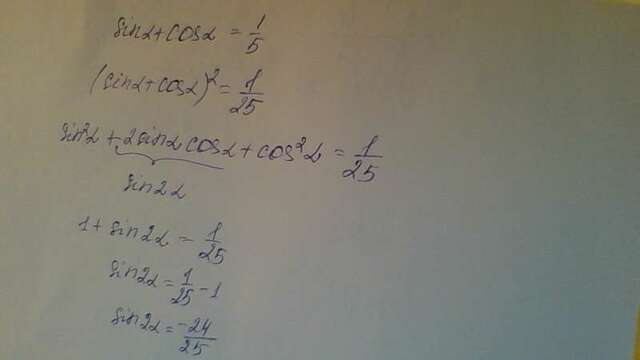 sinα+cosα = 1/5
(sinα+cosα)² = 1/25
sin²α + 2sinα cosα + cos²α = 1/25
sin2α
1 + sin2α = 1/25
sin2α = 1/25 - 1
sin2α = -24/25